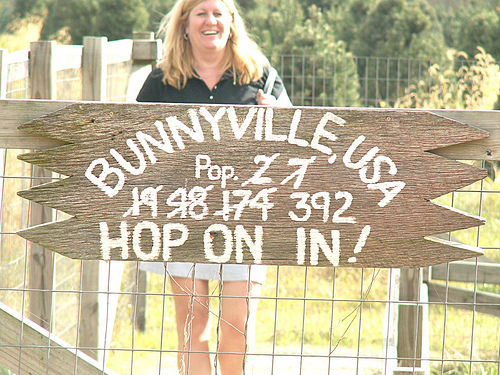 BUNNYVILLE, USA
Pop. 2 7
19 48 174 392
HOP ON IN!